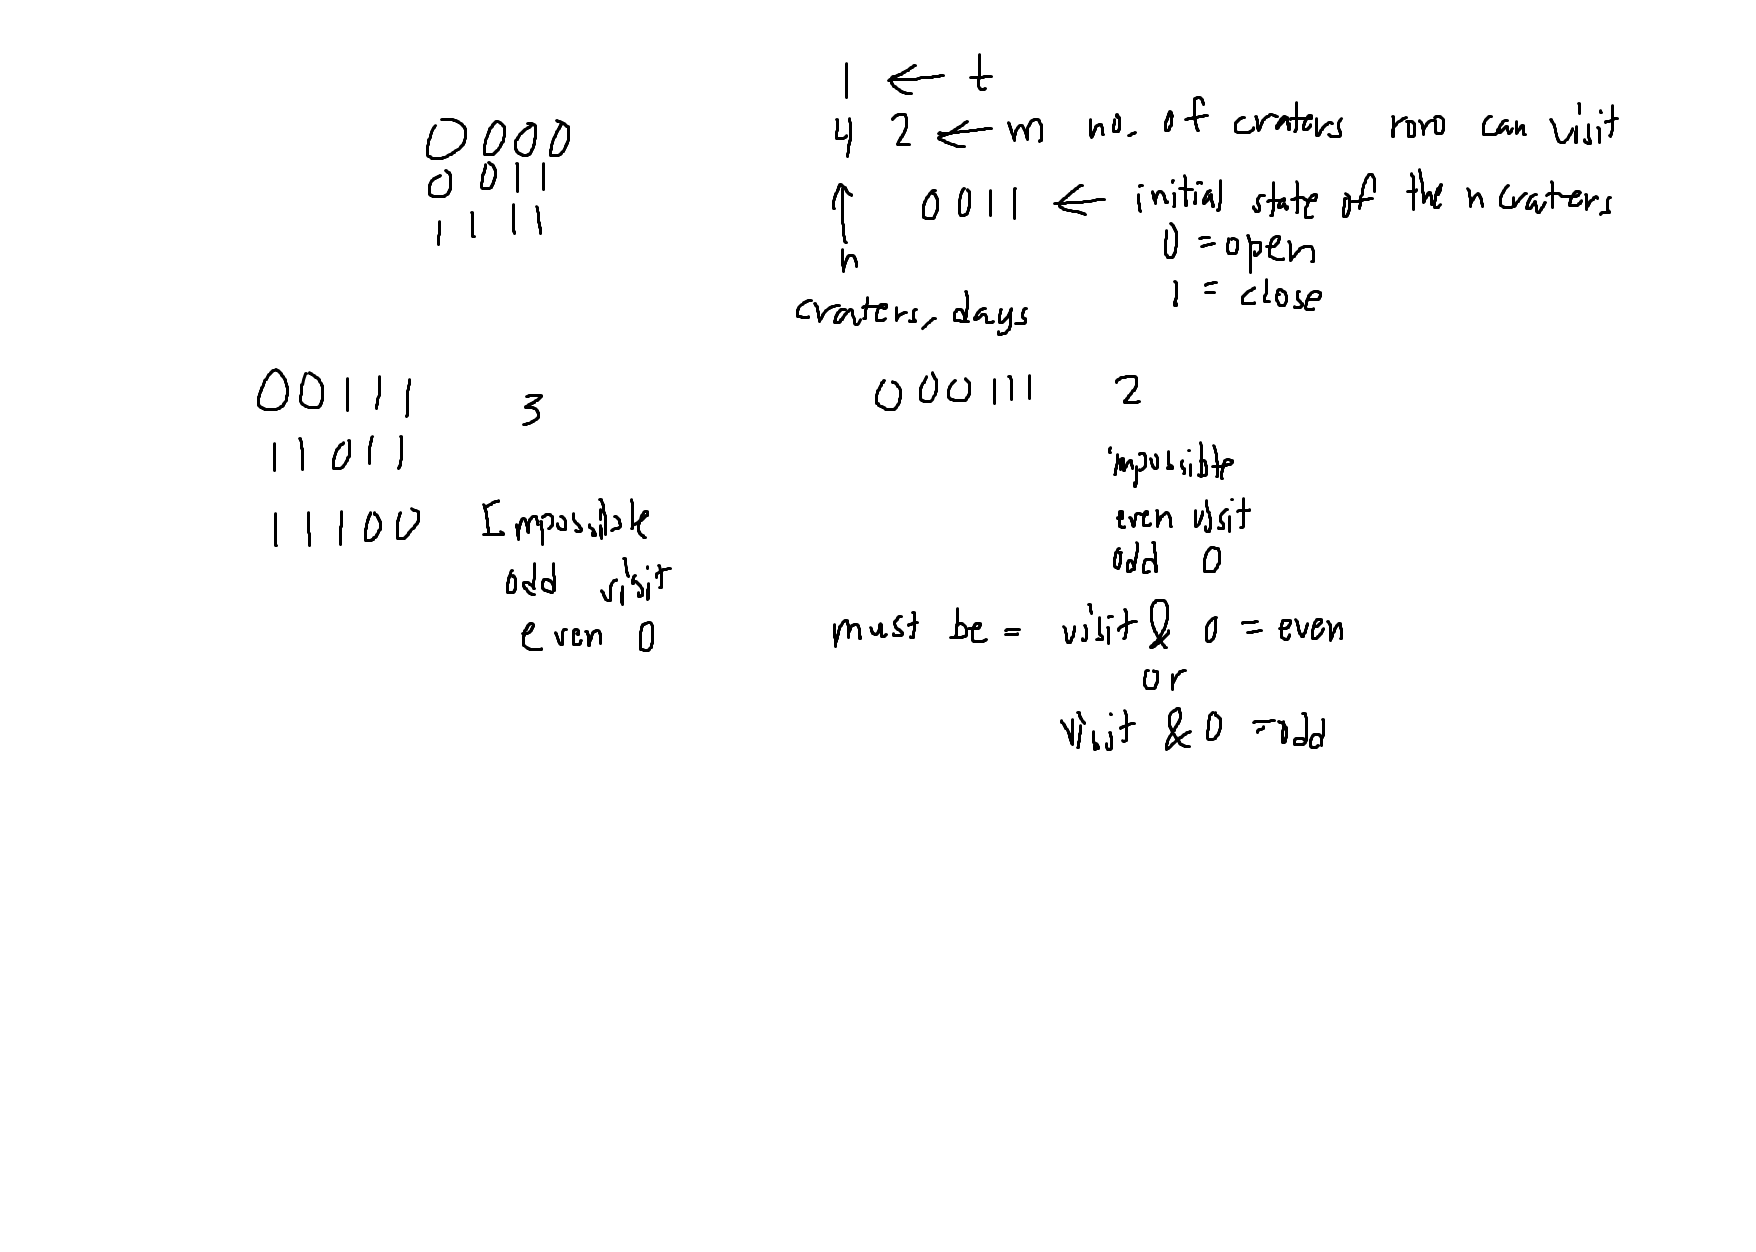 1 ← t
4 2 ← m no. of craters roro can visit
0011 ← initial state of the n craters
0 = open
1 = close
↑
n
craters, days
0000
0011
1111
00111 3
11011
11100 Impossible
odd visit
even 0
000111 2
impossible
even visit
odd 0
must be = visit & 0 = even
or
visit & 0 = odd